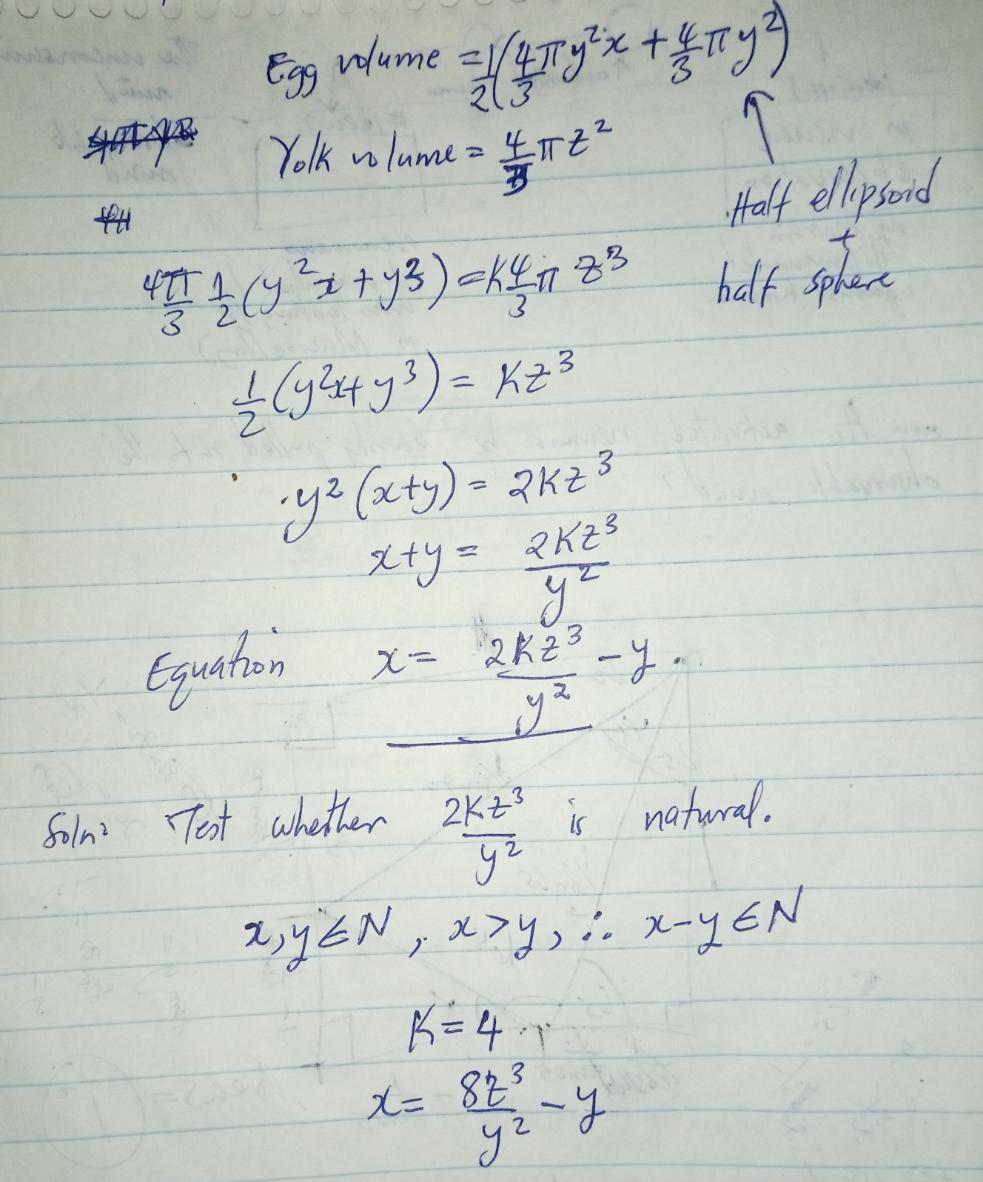 Egg volume = 1/2(4/3 πy²x + 4/3 πy²)
Yolk volume = 4/3 πz²
Half ellipsoid
+
half sphere
4π/3 1/2 (y²x + y³) = K 4/3 π z³
1/2 (y²x + y³) = Kz³
y² (x+y) = 2Kz³
x+y = 2Kz³/y²
Equation x = 2Kz³/y² - y.
Soln: Test whether 2Kz³/y² is natural.
x,y ∈ N, x>y, ∴ x-y ∈ N
K = 4
x = 8z³/y² - y